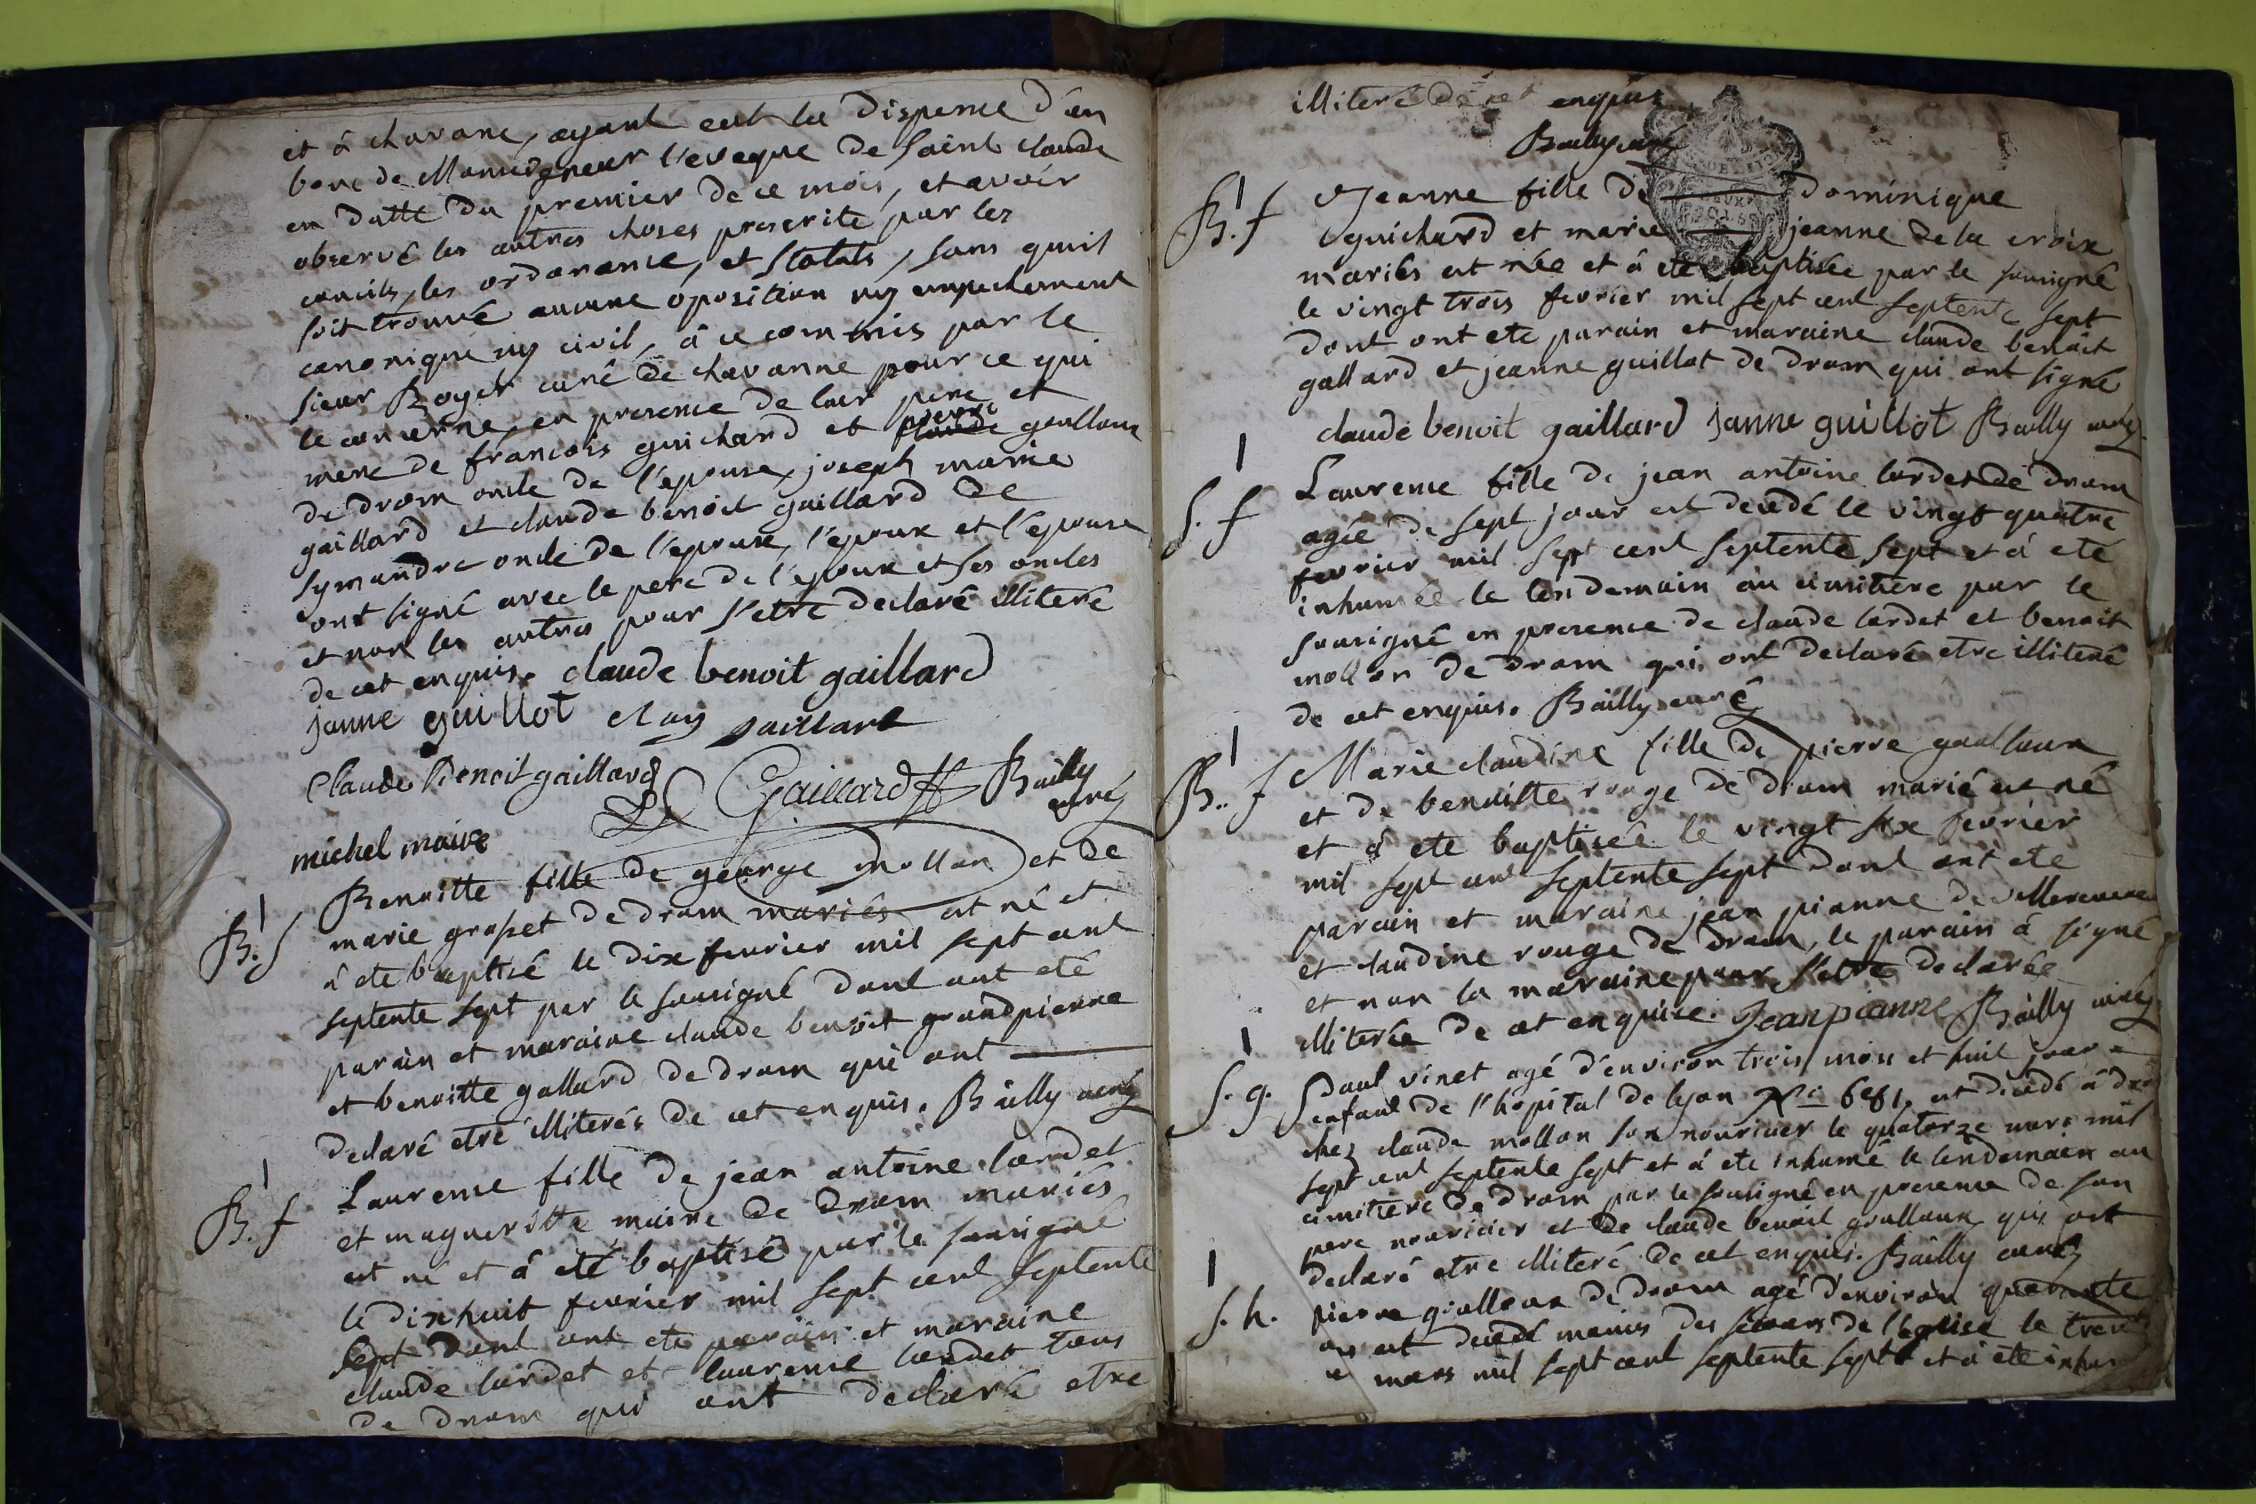 et â chavane, ayant eut la dispense d'un
banc de Monseigneur l'eveque de saint claude
en datte du premier de ce mois, et avoir
observé les autres choses prescrite par les
concils, les ordonance, et statuts, sans qu'il
soit trouvé aucune oposition ny empechement
canonique ny civil, â ce commis par le
sieur Royer curé de chavanne pour ce qui
le concerne, en presence de leur pere et
mere de francois guichard et pierre goulloux
de drom oncle de l'epouse, joseph marie
gaillard et claude benoit gaillard de
symandre oncle de l'epouse, l'epoux et l'épouse
ont signé avec le pere de l'epoux et ses oncles
et non les autres pour s'etre declaré illiteré
de cet enquis. claude benoit gaillard
janne guillot gaillard
Claude Benoit gaillard Gaillard Bailly curé
michel maire
B. f Benoitte fille de george mollon et de
marie grosset de drom mariés est né et
â ete baptisé le dix fevrier mil sept cent
septente sept par le sousigné dont ont eté
parain et maraine claude benoit grandpierre
et benoitte gallard de drom qui ont
declaré etre illiterés de cet enquis. Bailly curé
B. f Laurence fille de jean antoine lardet
et magueritte maire de drom mariés
est né et â eté baptisé par le sousigné
le dixhuit fevrier mil sept cent septente
sept dont ont ete parain et maraine
claude lardet et laurence lardet tous
de drom qui ont declaré etre
illiteré de cet enquis
Bailly curé
B. f Jeanne fille de dominique
guichard et marie jeanne de la croix
mariés est née et â ete baptisée par le sousigné
le vingt trois fevrier mil sept cent septente sept
dont ont ete parain et maraine claude benoit
gallard et jeanne guillot de drom qui ont signé
claude benoit gaillard janne guillot Bailly curé
S. f Laurence fille de jean antoine lardet de drom
agée de sept jour est decedé le vingt quatre
fevrier mil sept cent septente sept et â eté
inhumée le lendemain au cimitiere par le
sousigné en presence de claude lardet et benoit
mollon de drom qui ont declaré etre illiteré
de cet enquis. Bailly curé
B. f Marie claudine fille de pierre goulloux
et de benoitte rouge de drom marié est né
et â ete baptisée le vingt six fevrier
mil sept cent septente sept dont ont ete
parain et maraine jean pianne de villereversure
et claudine rouge de drom, le parain â signé
et non la maraine pour s'etre declarée
illiterée de cet enquise. Jean pianne Bailly curé
S. g. Paul vinet agé d'environ trois mois et huit jour
enfant de l'hôpital de lyon N° 6681, est decedé â
chez claude mollon son nouricier le quatorze mars mil
sept cent septente sept et â ete inhumé le lendemain au
cimitiere de drom par le sousigné en presence de son
pere nouricier et de claude benoit goulloux qui ont
declaré etre illiteré de cet enquis. Bailly curé
S. h. pierre goulloux de drom agé d'environ quarante
ans est decedé munis des secours de l'eglise le
mars mil sept cent septente sept et â ete